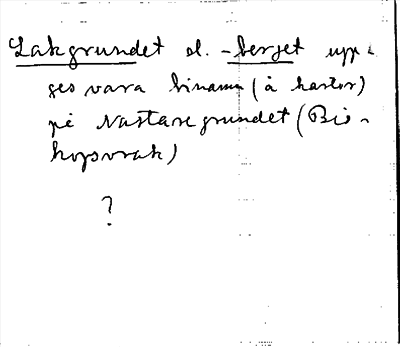 Lakgrundet el. -berget upp-
ges vara binamn (å kartor)
på Nastaregrundet (Bis-
kopsvrak)
?